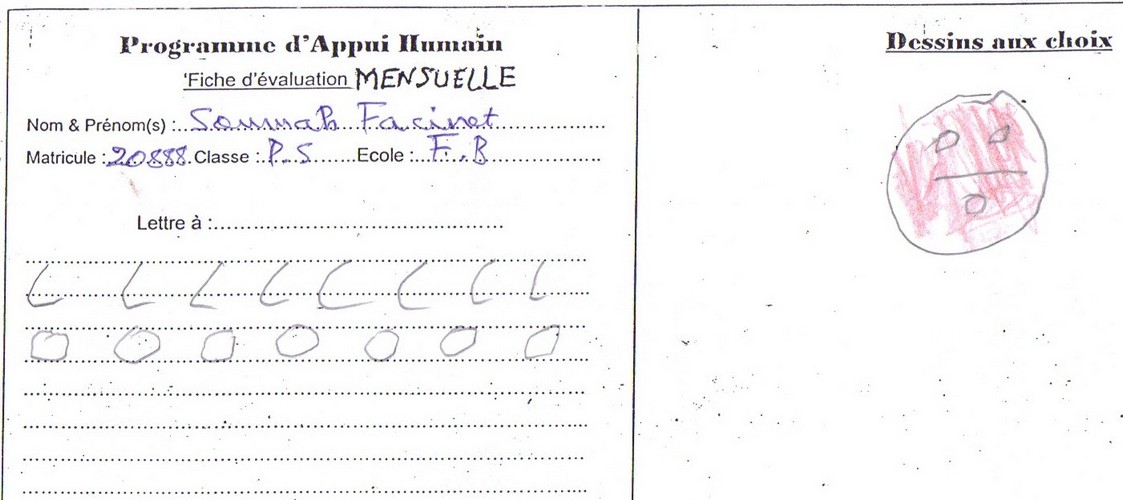 Programme d'Appui Humain
'Fiche d'évaluation MENSUELLE
Nom & Prénom(s) : Soumah Facinet
Matricule : 20888. Classe : P.S Ecole : F.B
Lettre à :
Dessins aux choix